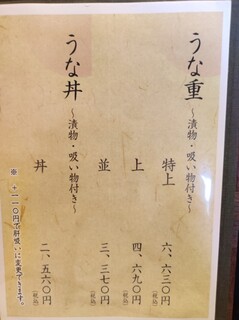 うな重
～漬物・吸い物付き～
特上 六、六三〇円(税込)
上 四、六九〇円(税込)
並 三、三七〇円(税込)
うな丼
～漬物・吸い物付き～
丼 二、五六〇円(税込)
※ +一一〇円で肝吸いに変更できます。